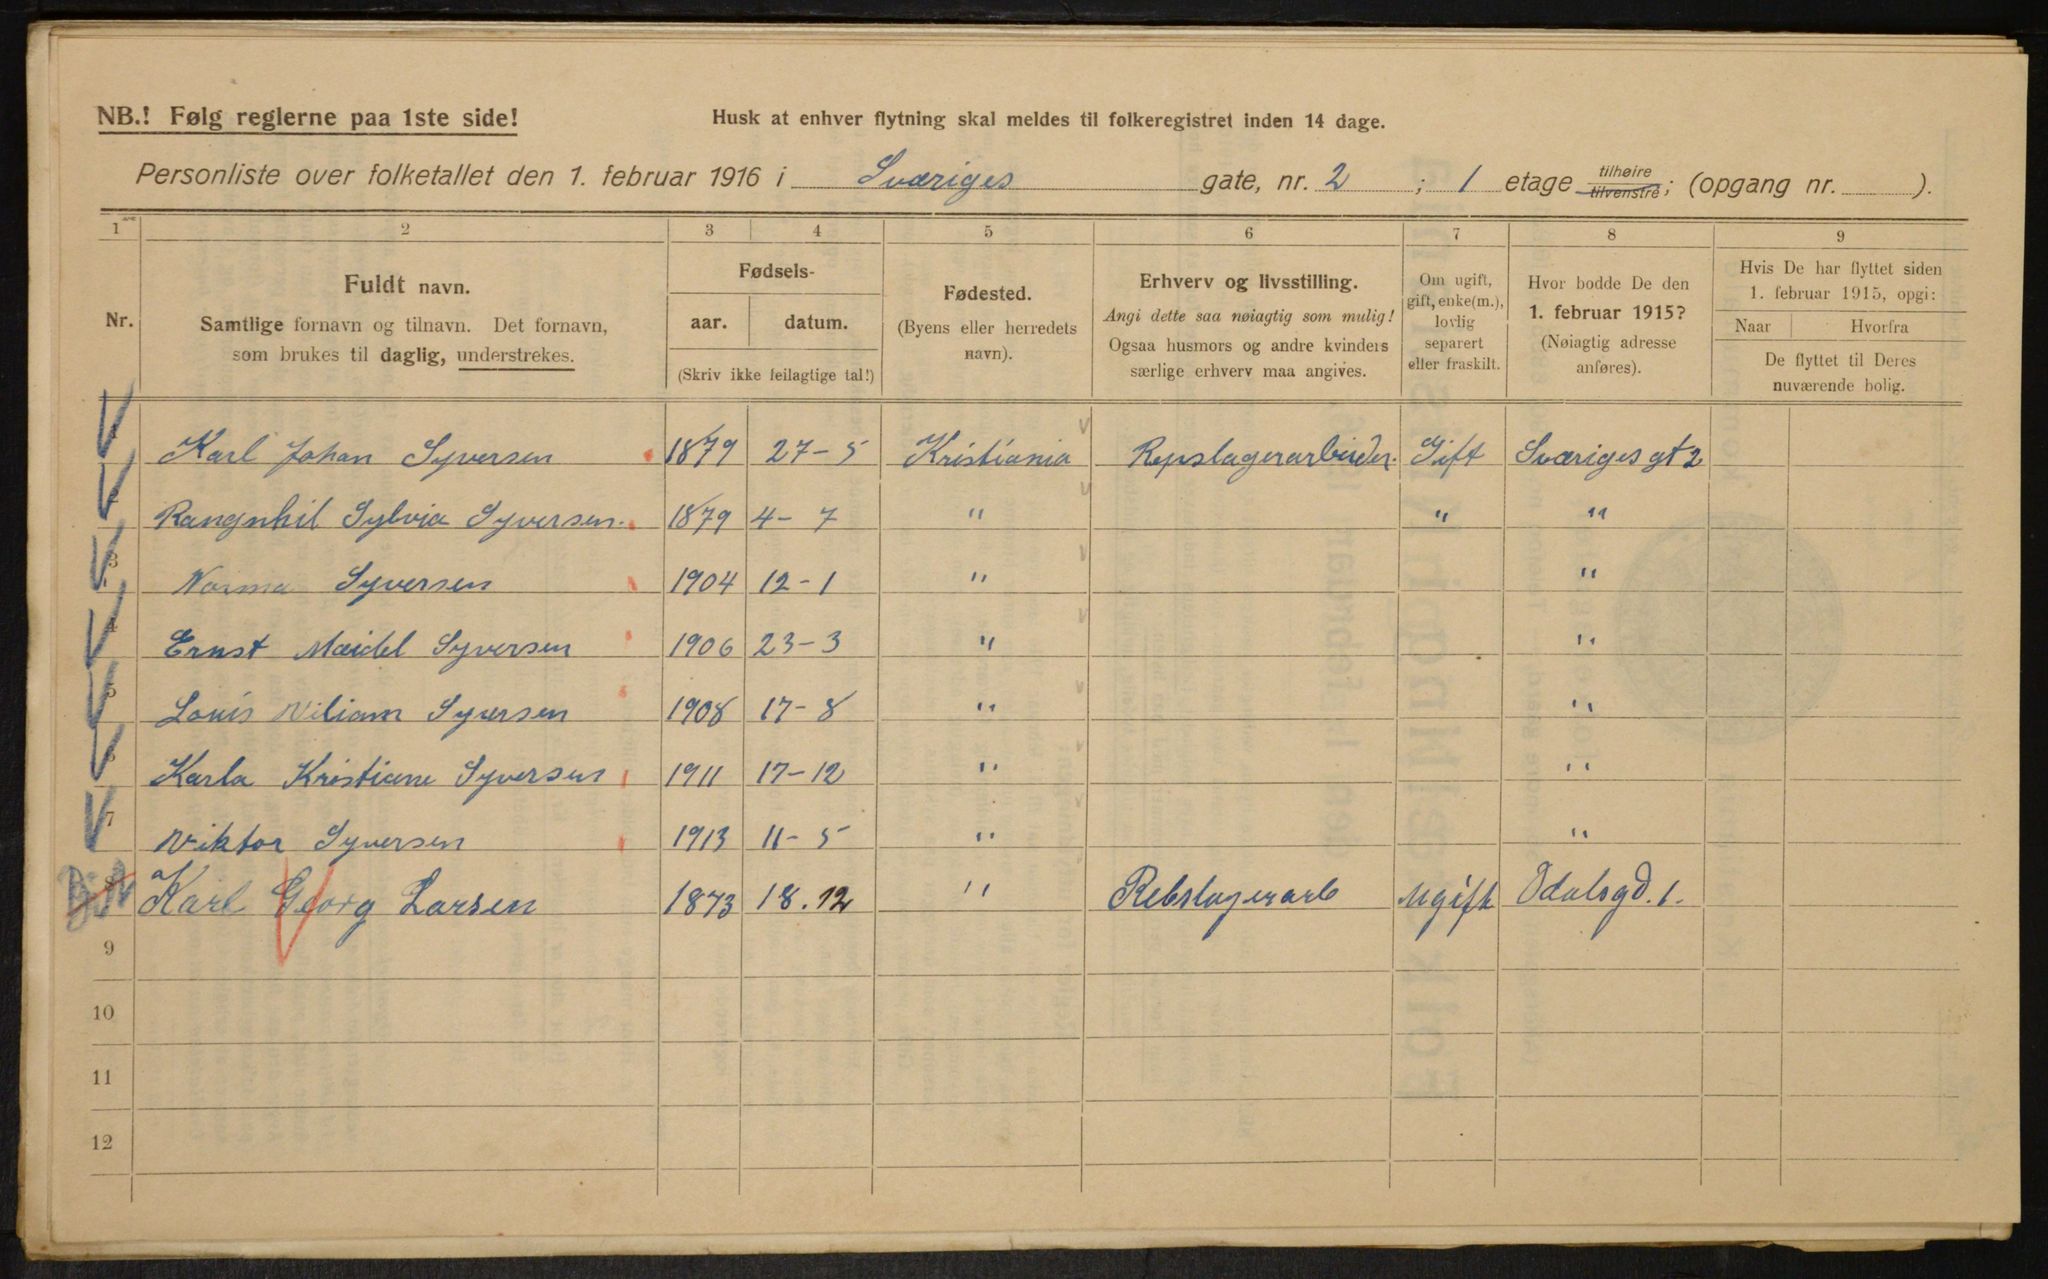 NB.! Følg reglerne paa 1ste side!
Husk at enhver flytning skal meldes til folkeregistret inden 14 dage.
Personliste over folketallet den 1. februar 1916 i Sværiges gate, nr. 2 ; 1 etage tilhøire tilvenstre; (opgang nr. ).
1 2 3 4 5 6 7 8 9
Nr.
Fuldt navn.
Samtlige fornavn og tilnavn. Det fornavn,
som brukes til daglig, understrekes.
Fødsels-
aar. datum.
(Skriv ikke feilagtige tal!)
Fødested.
(Byens eller herredets
navn).
Erhverv og livsstilling.
Angi dette saa nøiagtig som mulig!
Ogsaa husmors og andre kvinders
særlige erhverv maa angives.
Om ugift,
gift, enke(m.),
lovlig
separert
eller fraskilt.
Hvor bodde De den
1. februar 1915?
(Nøiagtig adresse
anføres).
Hvis De har flyttet siden
1. februar 1915, opgi:
Naar Hvorfra
De flyttet til Deres
nuværende bolig.
Karl Johan Syversen 1879 27-5 Kristiania Repslagerarbeider. Gift Sværiges gt 2
Rangnhil Sylvia Syversen. 1879 4-7 " " "
3 Norma Syversen 1904 12-1 " "
4 Ernst Meidel Syversen 1906 23-3 " "
5 Louis Viliam Syversen 1908 17-8 " "
6 Karla Kristiane Syversen 1911 17-12 " "
7 Viktor Syversen 1913 11-5 " "
8 Karl Georg Larsen 1873 18.12 " Rebslagerarb Ugift Odalsgd. 1.
9
10
11
12